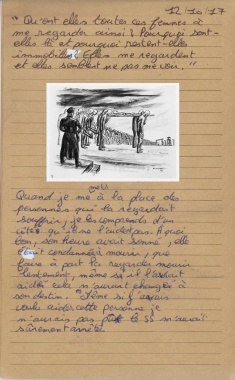 12/10/17
" Qu'ont elles toutes ces femmes à
me regarder ainsi ? Pourquoi sont-
elles là et pourquoi restent-elles
immobiles ? Elles me regardent
et elles semblent ne pas me voir. "
(mets)
Quand je me à la place des
personnes qui la regardait
souffrir, je les comprends d'un
côté qu'il ne l'aide pas. A quoi
bon, son heure avait sonné, elle
était condamnée à mourir, que
faire à part la regarder mourir
lentement, même si il l'aidait
cela n'aurait changé à
son destin. Même si j'avais
voulu aider cette personne je
n'aurais pas le SS m'aurait
sûrement arrêtée